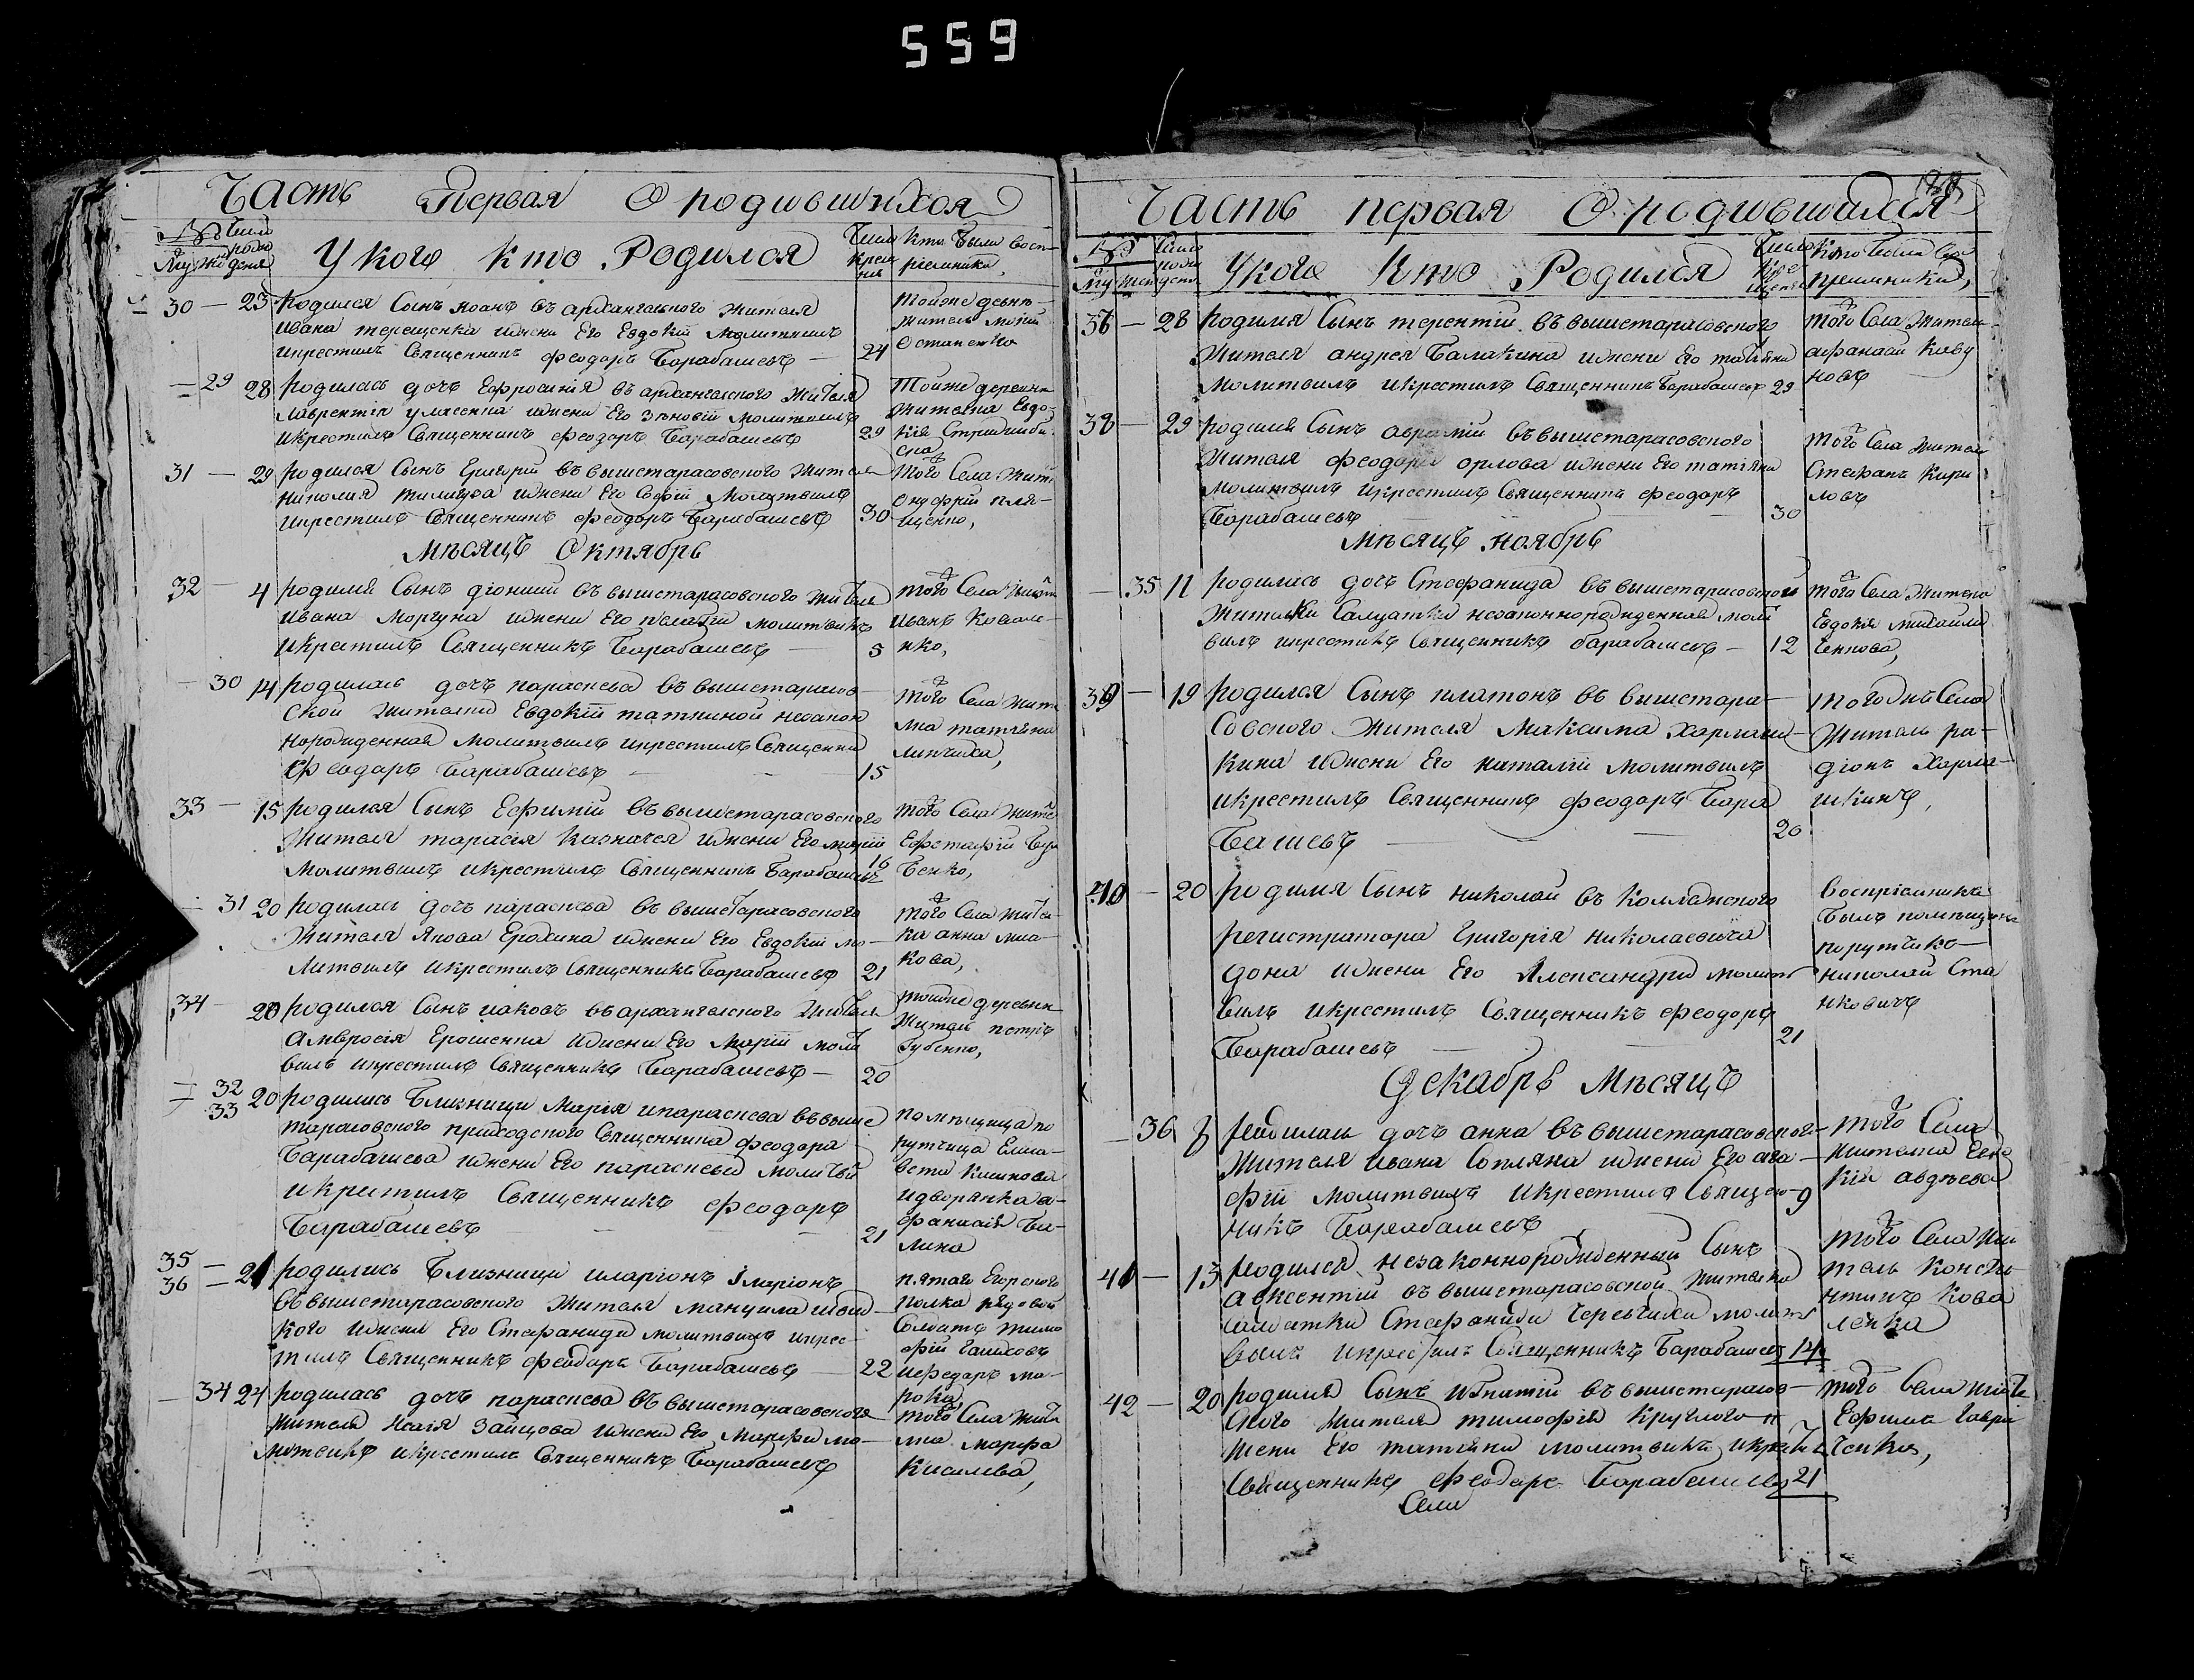 559
Часть Первая О родившихся
№ Число рожденія
Муж Жен
У кого кто Родился
Число крещенія
Кто были воспріемники
30 — 23 родился Сынъ иоанъ въ архангельского жителя
Ивана терещенка ижени Его Евдокіи молитвилъ
икрестилъ Священникъ феодоръ Барабашевъ — 24
Тойже деревни
Житель
Остапенко
— 29 28 родилась дочь Ефросинія въ архангельского жителя
Лаврентія ижени Его Зѣновіи молитвилъ
икрестилъ Священникъ феодоръ Барабашевъ 29
Тойже деревни
Жителка Евдо-
кія
31 — 29 родился Сынъ Григорій въ вышетарасовского жителя
ижени Его Софіи Молитвилъ
икрестилъ Священникъ феодоръ Барабашевъ 30
Того Села Жит
Онуфрій пля-
щенко,
Мѣсяцъ Октябрь
32 — 4 родился Сынъ діонисій въ вышетарасовского жителя
Ивана Моргуна ижени Его пелагіи молитвилъ
икрестилъ Священникъ Барабашевъ — 5
того Села жит
Иванъ Ковале-
нко,
— 30 14 родилась дочь параскева въ вышетарасов-
ской жителки Евдокіи незакон
норожденная молитвилъ икрестилъ Священни
феодоръ Барабашевъ — — 15
того Села жите
лка татіяна
33 — 15 родился Сынъ Ефимій въ вышетарасовского
Жителя тарасія Казначея ижени Его маріи
молитвилъ икрестилъ Священникъ Барабашевъ 16
того Села жите
Ефстафій
бенко,
— 31 20 родилась дочь параскева въ вышетарасовского
Жителя Якова Ерохина ижени Его Евдокіи мо-
литвилъ икрестилъ Священникъ Барабашевъ 21
того Села жител
ка анна
кова,
34 — 20 родился Сынъ иаковъ въ архангельского жителя
Амвросія Ерошенка ижени Его Маріи моли
вилъ икрестилъ Священникъ Барабашевъ — 20
тойже деревни
Житель петръ
Губенко,
32
33 20 родились близници Марія ипараскева въ выше
тарасовского приходского Священника феодора
Барабашева ижени Его параскевы молитви
икрестилъ Священникъ феодоръ
Барабашевъ — — 21
помѣщица по
рутчица Елиза-
вета
идворянка а-
фанасія Ба-
лина
35 —
36 — 21 родились близници иларіонъ Иларіонъ
въ вышетарасовского жителя мануила
кого ижени Его Стефаниды молитвилъ икрес-
тилъ Священникъ феодоръ Барабашевъ — 22
пятаго Егерского
полка рядовой
Солдатъ тимо
фій
ифедоръ мо-
рока,
— 34 24 родилась дочь параскева въ вышетарасовского
жителя Исаія Зайцова ижени Его Марфи мо-
литвилъ икрестилъ Священникъ Барабашевъ
того Села жите
лка марфа
Киселева,
Часть первая О родившихся
№ Число рожденія
Муж Жен
У кого Кто Родился
Число крещенія
Кто были вос
пріемники,
37 — 28 родился Сынъ терентій въ вышетарасовского
Жителя андрея Балакина ижени Его татіяни
молитвилъ икрестилъ Священникъ Барабашевъ 29
того Села Жител
афанасій Кову
новъ
38 — 29 родился Сынъ аврамій въ вышетарасовского
Жителя феодора орлова ижени Его татіяни
молитвилъ икрестилъ Священникъ феодоръ
Барабашевъ 30
того Села жител
Стефанъ Кири
ловъ
Мѣсяцъ ноябрь
— 35 11 родилась дочь Стефанида въ вышетарасовской
жителки Салдатки незаконнорожденная моли
вилъ икрестилъ Священникъ барабашевъ — 12
того Села жителка
Евдокія Михайли
ченкова,
39 — 19 родился Сынъ платонъ въ вышетара-
совского Жителя Максима Харлаш-
кина ижени Его наталіи молитвилъ
икрестилъ Священникъ феодоръ Бара
башевъ — 20
тогожъ Села
житель ра-
діонъ Харла-
шкинъ,
40 — 20 родился Сынъ николай въ Коллежского
регистратора Григорія николаевича
дона ижени Его Александри молит
вилъ икрестилъ Священникъ феодоръ
Барабашевъ — — 21
воспріемникъ
былъ помѣщикъ
порутчикъ
николай Ста
нковичъ
Декабрь Мѣсяцъ
— 36 8 родилась дочь анна въ вышетарасовского
жителя ивана Сопляка ижени Его ага-
фіи молитвилъ икрестилъ Священ- 9
никъ Барабашевъ
того Села
жителка Евдо
кія авдѣева
41 — 13 родился незаконнорожденный Сынъ
авксентій въ вышетарасовской жителки
солдатки Стефаниди молит
вилъ икрестилъ Священникъ Барабашевъ 14
того Села жи
тель Конста
нтинъ Кова
ленко
42 — 20 родился Сынъ игнатій въ вышетарасов-
ского жителя тимофія Круглого и
жени Его татіяни молитвилъ икрести
Священникъ феодоръ Барабашевъ 21
того Села жите
Ефимъ гаври
ченко,